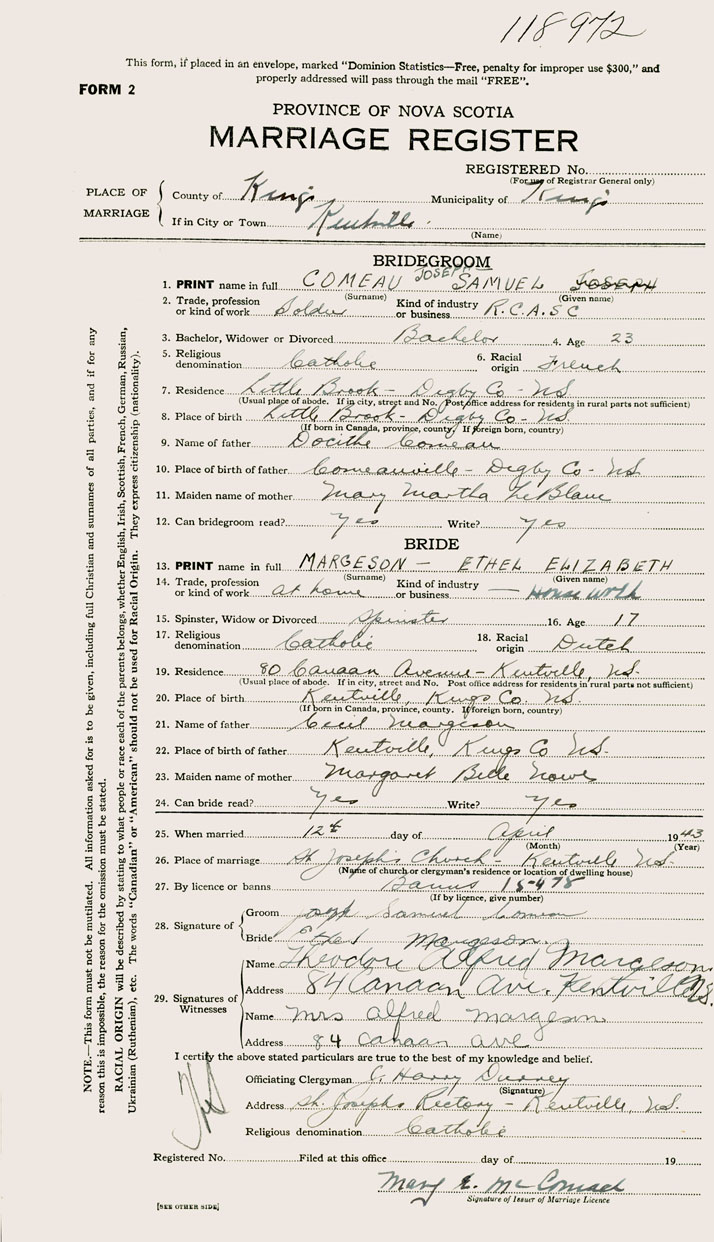 118972
This form, if placed in an envelope, marked "Dominion Statistics—Free, penalty for improper use $300," and
properly addressed will pass through the mail "FREE".
FORM 2
PROVINCE OF NOVA SCOTIA
MARRIAGE REGISTER
REGISTERED No.
(For use of Registrar General only)
PLACE OF MARRIAGE
County of Kings Municipality of Kings
If in City or Town Kentville
(Name)
BRIDEGROOM
1. PRINT name in full COMEAU JOSEPH SAMUEL JOSEPH
(Surname) (Given name)
2. Trade, profession or kind of work Soldier Kind of industry or business R.C.A.S.C
3. Bachelor, Widower or Divorced Bachelor 4. Age 23
5. Religious denomination Catholic 6. Racial origin French
7. Residence Little Brook - Digby Co - NS
(Usual place of abode. If in city, street and No. Post office address for residents in rural parts not sufficient)
8. Place of birth Little Brook - Digby Co - NS.
(If born in Canada, province, county. If foreign born, country)
9. Name of father Docithe Comeau
10. Place of birth of father Comeauville - Digby Co - NS.
11. Maiden name of mother Mary Martha LeBlanc
12. Can bridegroom read? yes Write? yes
BRIDE
13. PRINT name in full MARGESON - ETHEL ELIZABETH
(Surname) (Given name)
14. Trade, profession or kind of work at home Kind of industry or business — House work
15. Spinster, Widow or Divorced Spinster 16. Age 17
17. Religious denomination Catholic 18. Racial origin Dutch
19. Residence 80 Canaan Avenue - Kentville, NS.
(Usual place of abode. If in city, street and No. Post office address for residents in rural parts not sufficient)
20. Place of birth Kentville, Kings Co. NS.
(If born in Canada, province, county. If foreign born, country)
21. Name of father Cecil Margeson
22. Place of birth of father Kentville, Kings Co NS.
23. Maiden name of mother Margaret Belle
24. Can bride read? Yes Write? Yes
25. When married 12th day of April 1943
(Month) (Year)
26. Place of marriage St Joseph's Church - Kentville NS.
(Name of church or clergyman's residence or location of dwelling house)
27. By licence or banns Banns
(If by licence, give number)
28. Signature of
Groom Samuel Comeau
Bride Ethel Margeson.
29. Signatures of Witnesses
Name Theodore Alfred Margeson
Address 84 Canaan Ave. Kentville NS.
Name Mrs Alfred Margeson
Address 84 Canaan Ave
I certify the above stated particulars are true to the best of my knowledge and belief.
Officiating Clergyman Harry
(Signature)
Address St. Josephs Rectory - Kentville, NS.
Religious denomination Catholic
Registered No. Filed at this office day of 19
Mary E. McCormack
Signature of Issuer of Marriage Licence
[SEE OTHER SIDE]
NOTE.—This form must not be mutilated. All information asked for is to be given, including full Christian and surnames of all parties, and if for any
reason this is impossible, the reason for the omission must be stated.
RACIAL ORIGIN will be described by stating to what people or race each of the parents belongs, whether English, Irish, Scottish, French, German, Russian,
Ukrainian (Ruthenian), etc. The words "Canadian" or "American" should not be used for Racial Origin. They express citizenship (nationality).